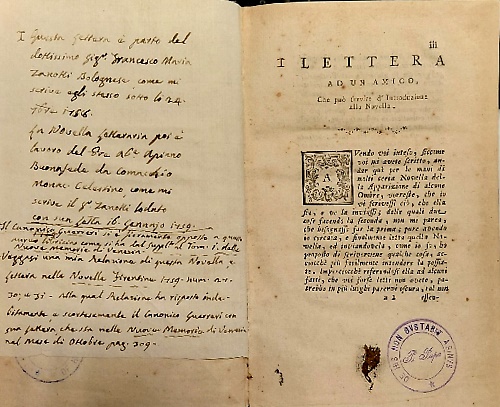 I Questa Lettera è parto del
dottissimo Sigr. Francesco Maria
Zanotti Bolognese come mi
scrive egli stesso sotto li 24.
1758.
La Novella letteraria poi è
lavoro del Abe. Apiano
Buonafede da Comacchio
Monac. Celestino, come mi
scrive il Sr. Zanotti lodato
con sua 16. Gennajo 1759.
Il Canonico Guerrieri si è
Veggasi una mia Relazione di questa Novella e
lettera nelle Novelle Fiorentine 1759. num. 2.
30, e 31 - alla qual Relazione ha risposto
e scortesemente il Canonico Guerrieri con
sua lettera che sta nelle Nuove Memorie di Venezia
nel Mese di Ottobre pag. 309.
iii
I LETTERA
AD UN AMICO,
Che può servire d'Introduzione
alla Novella.
AVendo voi inteso, siccome
voi mi avete scritto, an-
dar quì per le mani di
molti certa Novella del-
la Apparizione di alcune
Ombre, vorreste, che io
vi scrivessi ciò, che ella
sia, e ve la inviassi; delle quali due
cose facendo la seconda, non mi pareva
che bisognasse far la prima; pure avendo
io cercata, e finalmente letta quella No-
vella, ed inviandovela, come io fo, ho
proposto di scrivervene qualche cosa, ac-
ciocchè più facilmente intendere la possia-
te. Imperciocchè riferendosi ella ad alcuni
fatti, che voi forse letti non avete, pa-
rerebbe in più luoghi parervi oscura, tal non
a 2 essen-
DE HIS NON OVSTABVNT